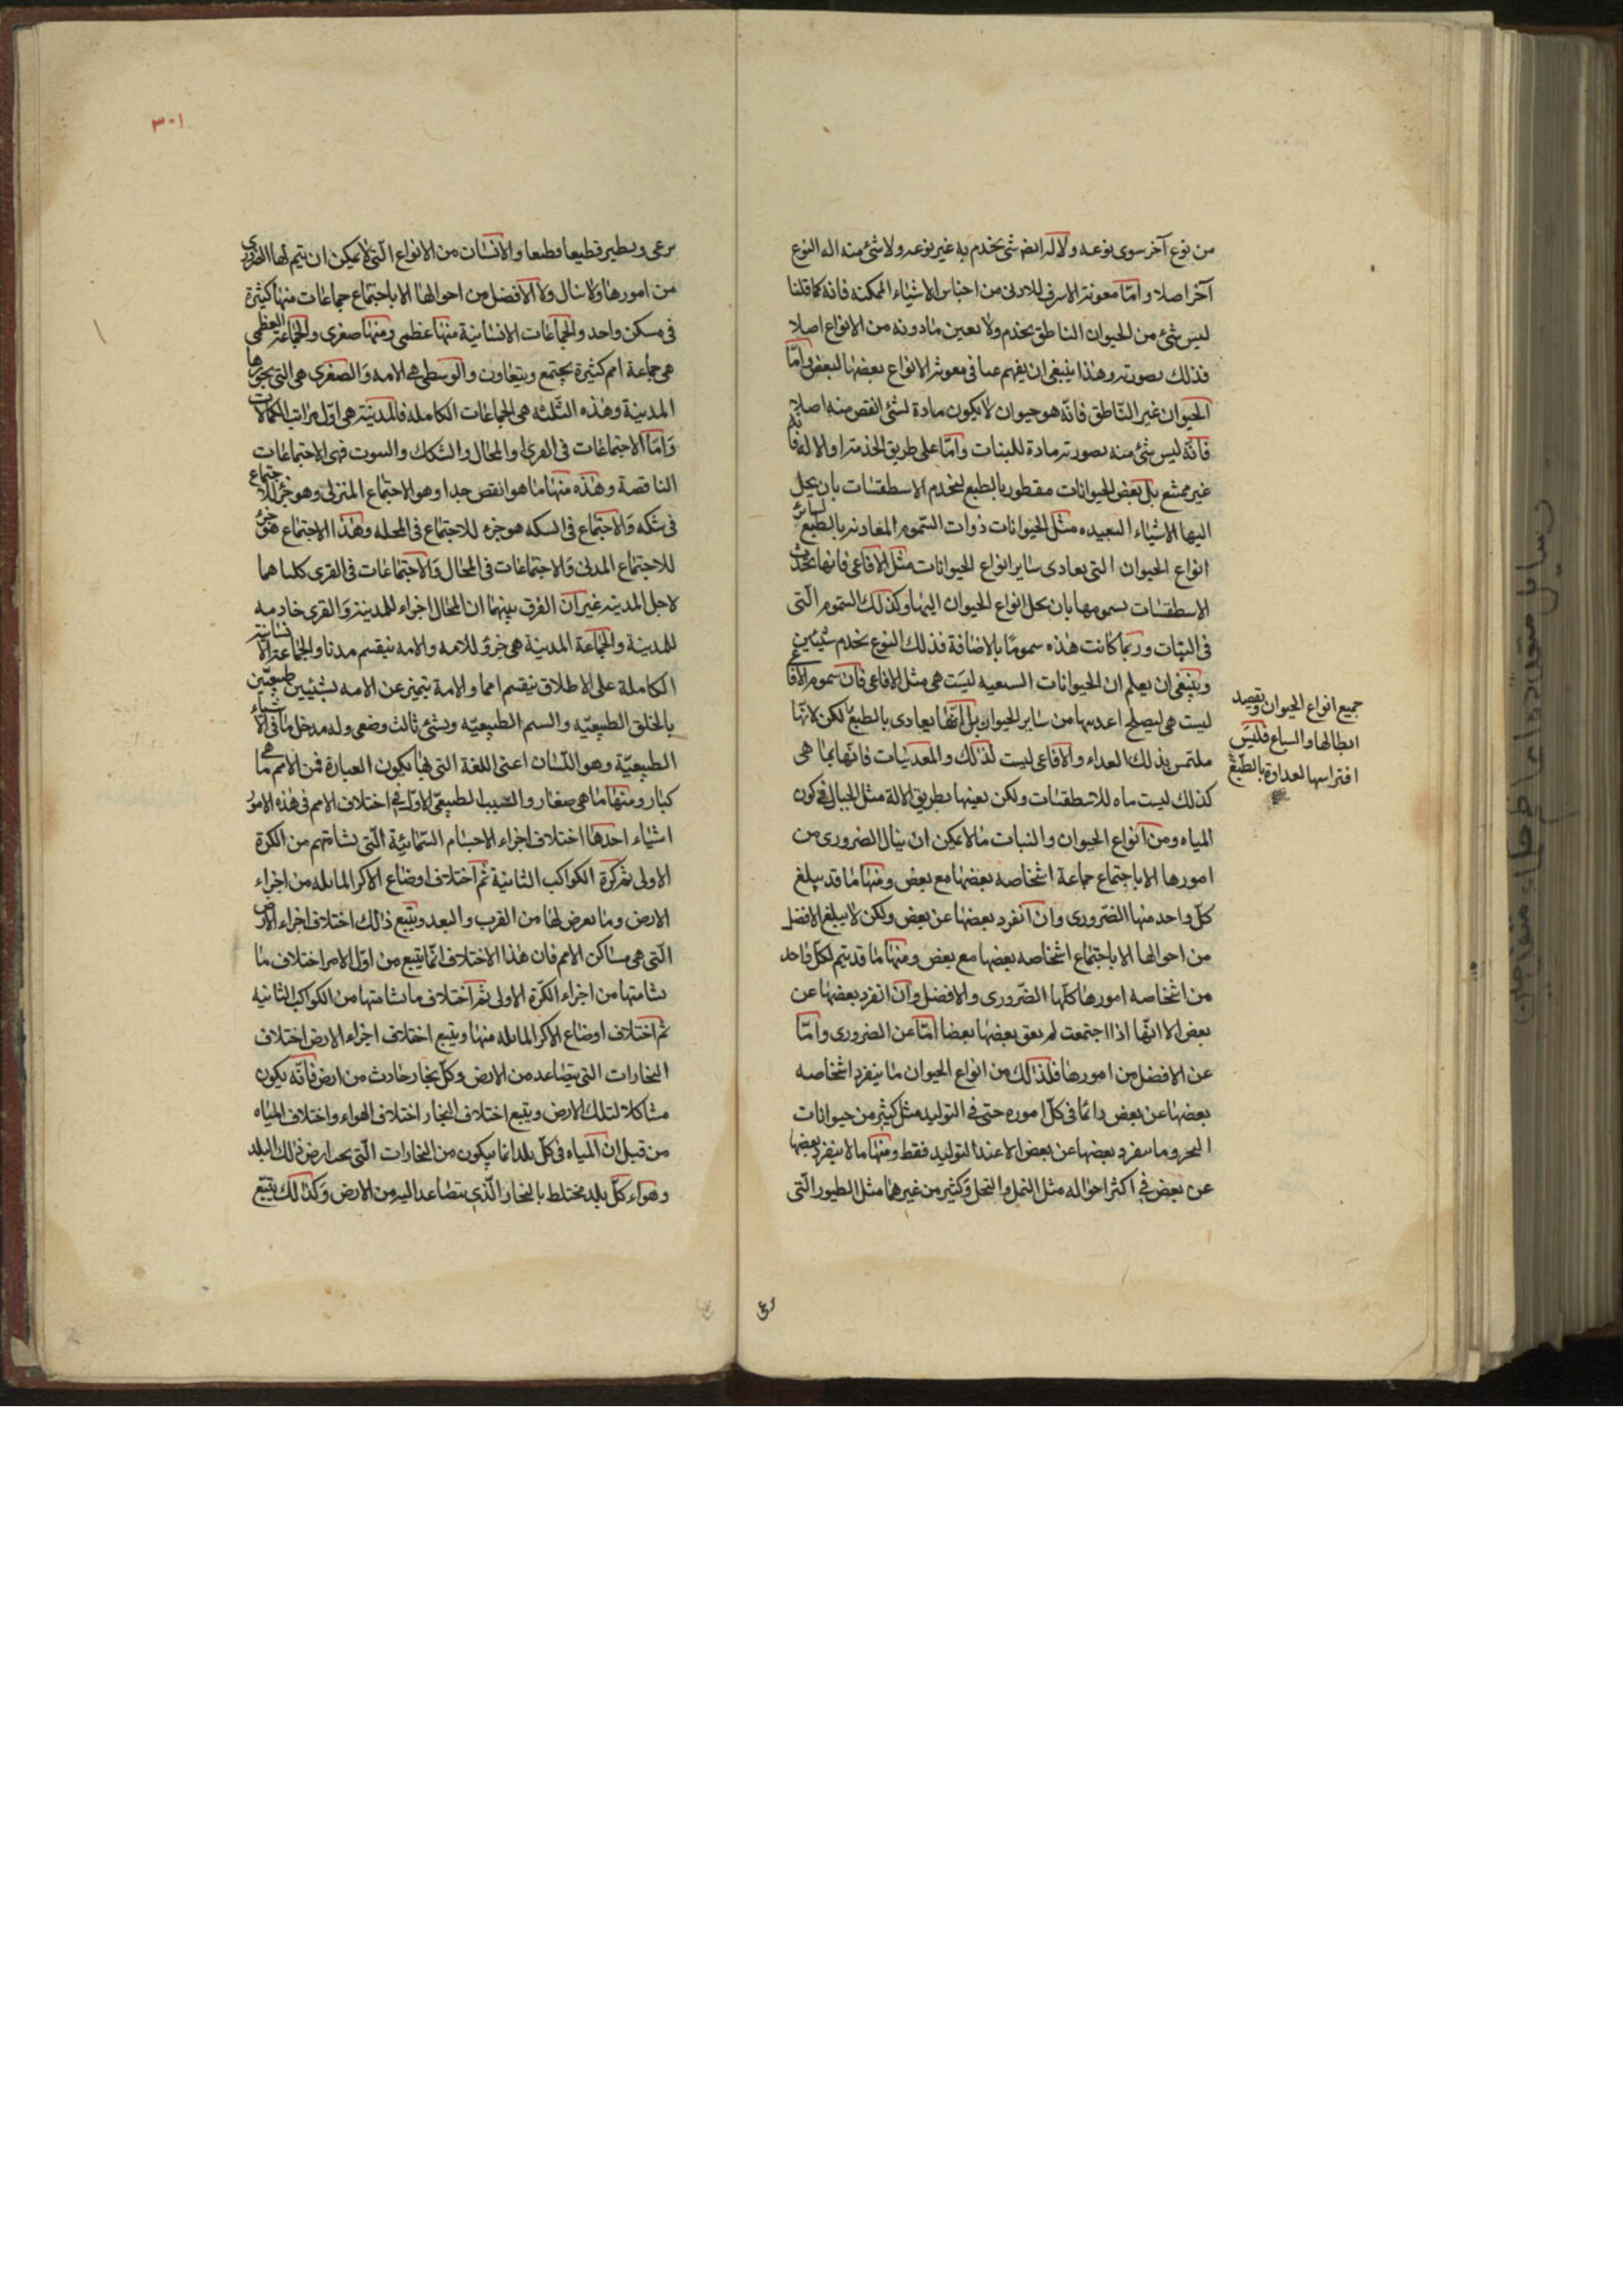 من نوع آخر سوى نوعه ولا له ايض شئ يخدم به غير نوعه ولا شئ منه اله النوع
آخر اصلا واما معونة الاسرف للادنى من اجناس الاشياء الممكنه فانه كما قلنا
ليس شئ من الحيوان الناطق يخدم ولا يعين ما دونه من الانواع اصلا
فذلك بصورته وهذا ينبغى ان يفهم عنا فى معونة الانواع بعضها لبعض واما
الحيوان غير الناطق فانه هو حيوان لا يكون مادة لشئ انقص منه اصلا
فانه ليس شئ منه بصورته مادة للنبات واما على طريق الخدمة او الاله فانه
غير ممتنع بل بعض الحيوانات مفطور بالطبع ليخدم الاسطقسات بان يحل
اليها الاشياء البعيده مثل الحيوانات ذوات السموم المعادية بالطبع لسائر
انواع الحيوان التى يعادى سائر انواع الحيوانات مثل الافاعى فانها تخدم
الاسطقسات بسمومها بان يحل انواع الحيوان اليها وكذلك السموم التى
فى النبات وربما كانت هذه سموما بالاضافة فذلك النوع يخدم شيئين
وينبغى ان يعلم ان الحيوانات السبعيه ليست هى مثل الافاعى فان سموم الافاعى
ليست هى ليصلح اغذيتها من ساير الحيوان بل انها يعادى بالطبع لكن لانها
جميع انواع الحيوان ويقصد
ابطالها والسباع فليس
افتراسها لعداوة بالطبع
ملتمس بذلك الغذاء والافاعى ليست لذلك والمعدنيات فانها بما هى
كذلك ليست ماده للاسطقسات ولكن يعينها بطريق الالة مثل الجبال فى كون
المياه ومن انواع الحيوان والنبات ما لا يمكن ان ينال الضرورى من
امورها الا باجتماع جماعة اشخاصه بعضها مع بعض ومنها ما قد يبلغ
كل واحد منها الضرورى وان انفرد بعضها عن بعض ولكن لا يبلغ الافضل
من احوالها الا باجتماع اشخاصه بعضها مع بعض ومنها ما قد يتم لكل واحد
من اشخاصه امورها كلها الضرورى والافضل وان انفرد بعضها عن
بعض الا انها اذا اجتمعت لم يعق بعضها بعضا اما عن الضرورى واما
عن الافضل من امورها فلذلك من انواع الحيوان ما ينفرد اشخاصه
بعضها عن بعض دائما فى كل اموره حتى فى التوليد مثل كثير من حيوانات
البحر وما ينفرد بعضها عن بعض الا عند التوليد فقط ومنها ما لا ينفرد بعضها
عن بعض فى اكثر احواله مثل النمل والنحل وكثير من غيرهما مثل الطيور التى
رعى
٣٠١
يرعى ويطير قطيعا قطيعا والانسان من الانواع التى لا يمكن ان يتم لها الضرورى
من امورها ولا ينال ولا الافضل من احوالها الا باجتماع جماعات منها كثيرة
فى مسكن واحد والجماعات الانسانية منها عظمى ومنها صغرى والجماعة العظمى
هى جماعة امم كثيرة يجتمع ويتعاون والوسطى هى الامه والصغرى هى التى يحوزها
المدينة وهذه الثلثه هى الجماعات الكامله فالمدينة هى اول مراتب الكمالات
واما الاجتماعات فى القرى والمحال والسكك والبيوت فهى الاجتماعات
الناقصة وهذه منها ما هو انقص جدا وهو الاجتماع المنزلى وهو جزء للاجتماع
فى سكه والاجتماع فى السكه هو جزء للاجتماع فى المحله وهذا الاجتماع هو جزء
للاجتماع المدنى والاجتماعات فى المحال والاجتماعات فى القرى كلتاهما
لاجل المدينه غير ان الفرق بينهما ان المحال اجزاء للمدينة والقرى خادمه
للمدينة والجماعة المدنية هى جزؤ للامه والامه ينقسم مدنا والجماعة الانسانية
الكاملة على الاطلاق ينقسم امما والامة يتميز عن الامه بشيئين طبيعيين
بالخلق الطبيعيه والسيم الطبيعيه وبشئ ثالث وضعى وله مدخل ما فى الاشياء
الطبيعيّة وهو اللسان اعنى اللغة التى بها يكون العبارة فمن الامم ما هى
كبار ومنها ما هى صغار والسبب الطبيعى الاول فى اختلاف الامم فى هذه الامور
اشياء احدها اختلاف اجزاء الاجسام السمائية التى تسامتهم من الكرة
الاولى ثم كرة الكواكب الثابتة ثم اختلاف اوضاع الاكر المائله من اجزاء
الارض وما يعرض لها من القرب والبعد ويتبع ذلك اختلاف اجزاء الارض
التى هى مساكن الامم فان هذا الاختلاف انما يتبع من اول الامر اختلاف ما
يسامتها من اجزاء الكرة الاولى ثم اختلاف ما يسامتها من الكواكب الثابتيه
ثم اختلاف اوضاع الاكر المائله منها ويتبع اختلاف اجزاء الارض اختلاف
البخارات التى يتصاعد من الارض وكل بخار حادث من ارض فانه يكون
مشاكلا لتلك الارض ويتبع اختلاف البخار اختلاف الهواء واختلاف المياه
من قبل ان المياه فى كل بلد انما يكون من البخارات التى تحت ارض ذلك البلد
وهواء كل بلد مختلط بالبخار الذى يتصاعد اليه من الارض وكذلك يتبع